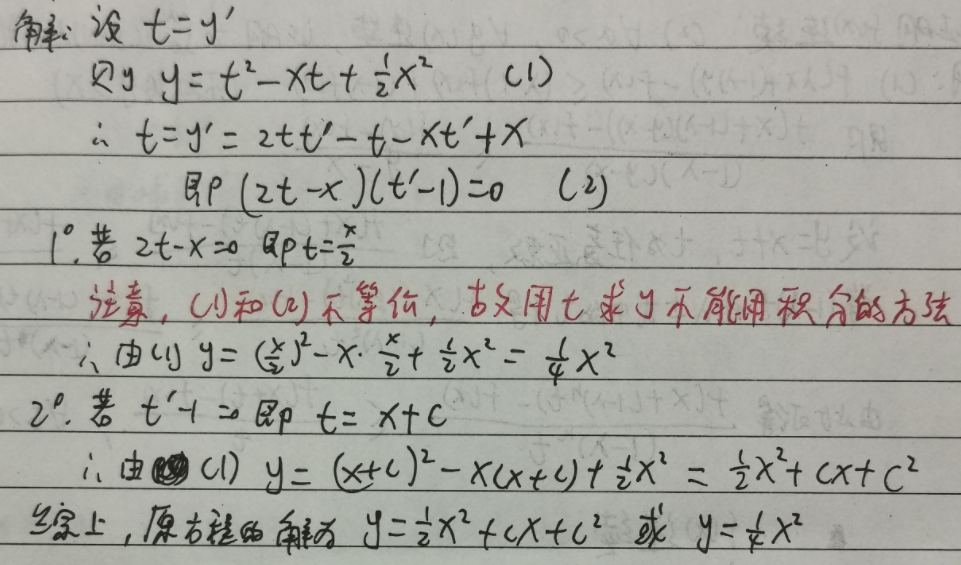 解: 设 t=y'
则 y=t²-xt+½x² (1)
∴ t=y'=2tt'-t-xt'+x
即 (2t-x)(t'-1)=0 (2)
1°. 若 2t-x=0 即 t=x/2
注意, (1)和(2)不等价, 故用t求y不能用积分的方法
∴ 由(1) y=(x/2)²-x·x/2+½x²=¼x²
2°. 若 t'-1=0 即 t=x+C
∴ 由(1) y=(x+C)²-x(x+C)+½x²=½x²+Cx+C²
综上, 原方程的解为 y=½x²+Cx+C² 或 y=¼x²